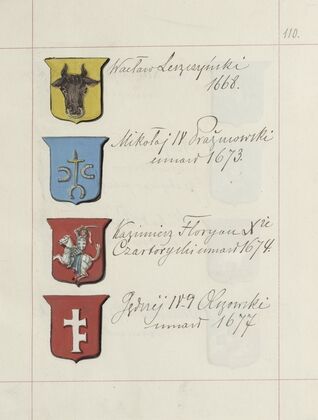 110.
Wacław Leszczyński
1668.
Mikołaj IV Prażmowski
umarł 1673.
Kazimierz Floryan Xże
Czartoryski umarł 1674.
Jędrzej Olszowski
umarł 1677